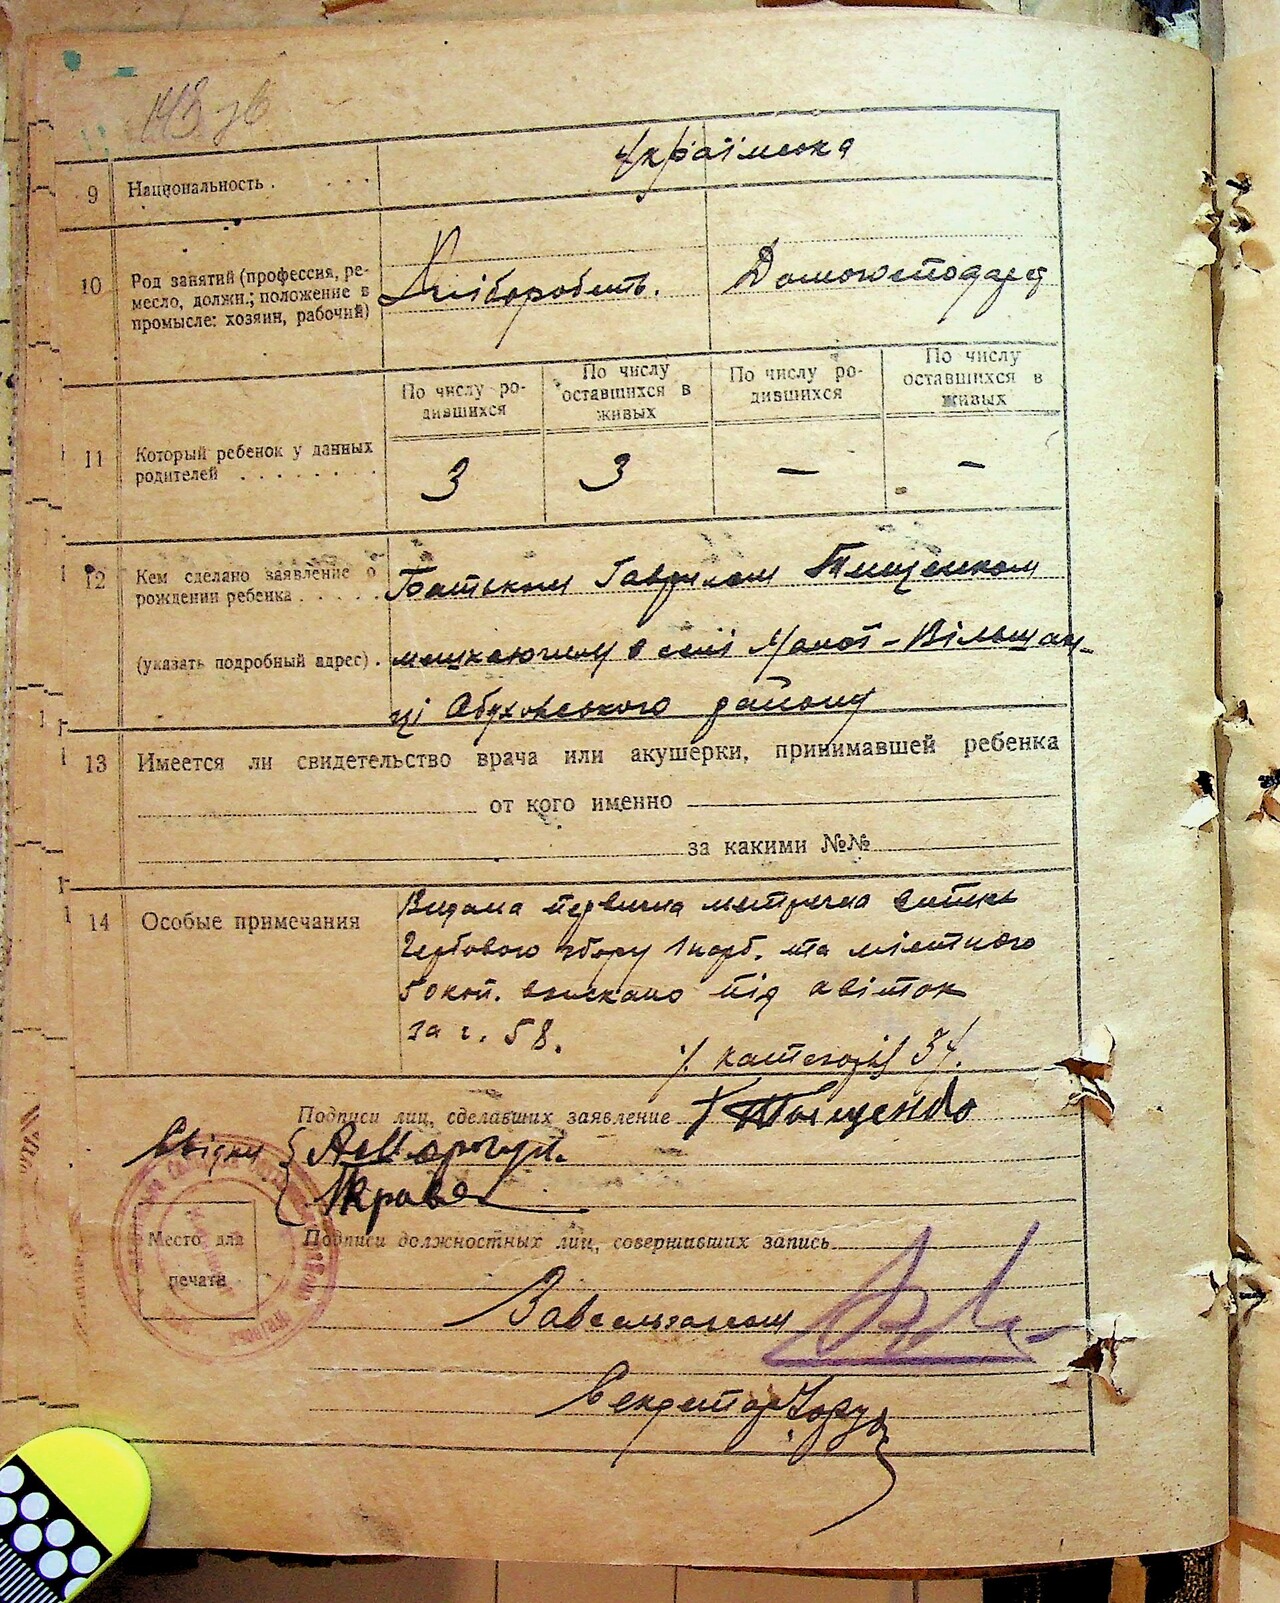 143 зв
9 Национальность . . . . Українська
10 Род занятий (профессия, ре-
месло, должн.; положение в
промысле: хозяин, рабочий)
Хлібороботв. Домогосподарка
11 Который ребенок у данных
родителей . . . . . . .
По числу ро-
дившихся
По числу
оставшихся в
живых
По числу ро-
дившихся
По числу
оставшихся в
живых
3 3 — —
12 Кем сделано заявление о
рождении ребенка . . . . .
(указать подробный адрес) .
Батьком Гаврилом Тищенком
мешкаючим в селі Малої-Вільшан-
ці Обуховського району
13 Имеется ли свидетельство врача или акушерки, принимавшей ребенка
от кого именно
за какими №№
14 Особые примечания
Видана первична метрична випись
Гербового збору 1 карб. та містного
50 коп. взискано під квіток
за ч. 58.
категорія 34.
Подписи лиц, сделавших заявление Г Тыщенко
Свідки {
Кравец
Место для
печати
Подписи должностных лиц, совершивших запись
Секретар